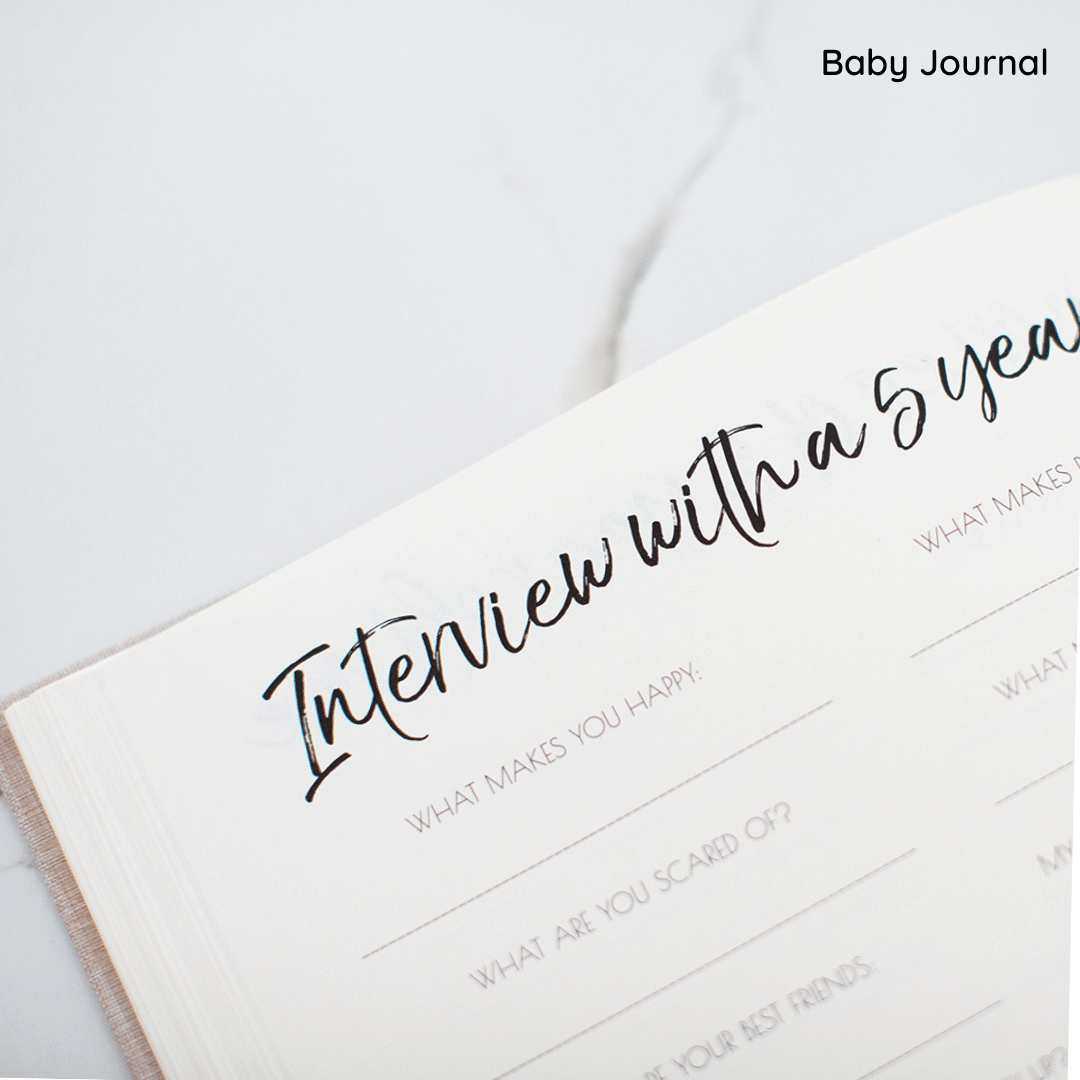 Baby Journal
Interview with a 5 year
WHAT MAKES YOU HAPPY:
WHAT ARE YOU SCARED OF?
YOUR BEST FRIENDS:
WHAT MAKES
WHAT
MY
UP?